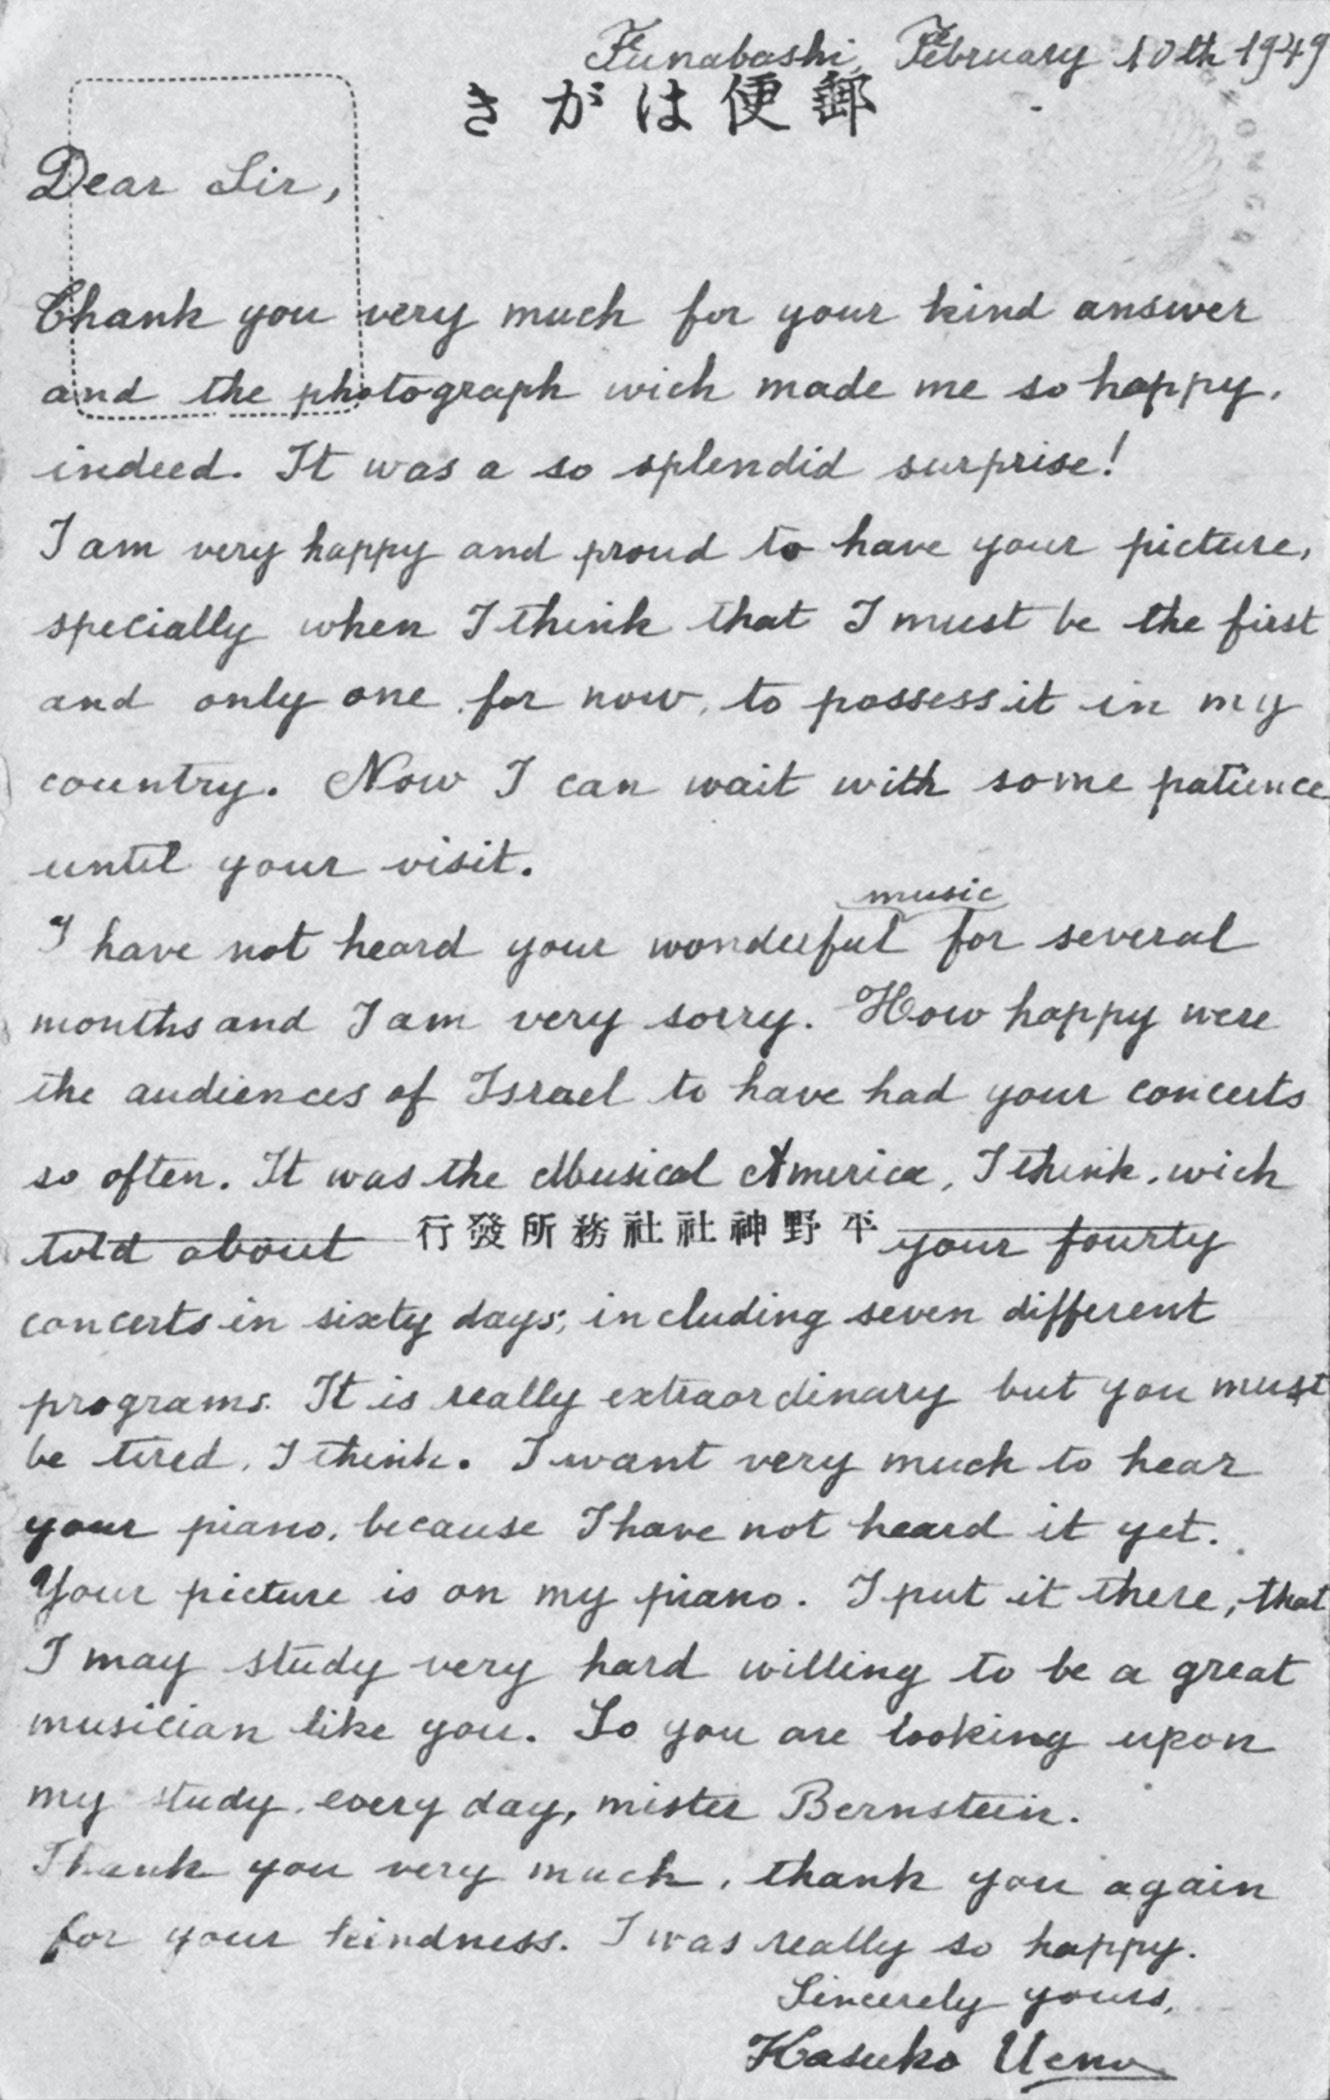 Funabashi, February 10th 1949
きがは便郵
Dear Sir,
Thank you very much for your kind answer
and the photograph wich made me so happy,
indeed. It was a so splendid surprise!
I am very happy and proud to have your picture,
specially when I think that I must be the first
and only one, for now, to possess it in my
country. Now I can wait with some patience
until your visit.
music
I have not heard your wonderful for several
months and I am very sorry. How happy were
the audiences of Israel to have had your concerts
so often. It was the Musical America, I think, wich
told about your fourty
行發所務社社神野平
concerts in sixty days, including seven different
programs. It is really extraordinary but you must
be tired, I think. I want very much to hear
your piano, because I have not heard it yet.
Your picture is on my piano. I put it there, that
I may study very hard willing to be a great
musician like you. So you are looking upon
my study, every day, mister Bernstein.
Thank you very much, thank you again
for your kindness. I was really so happy.
Sincerely yours,
Kasuko Ueno